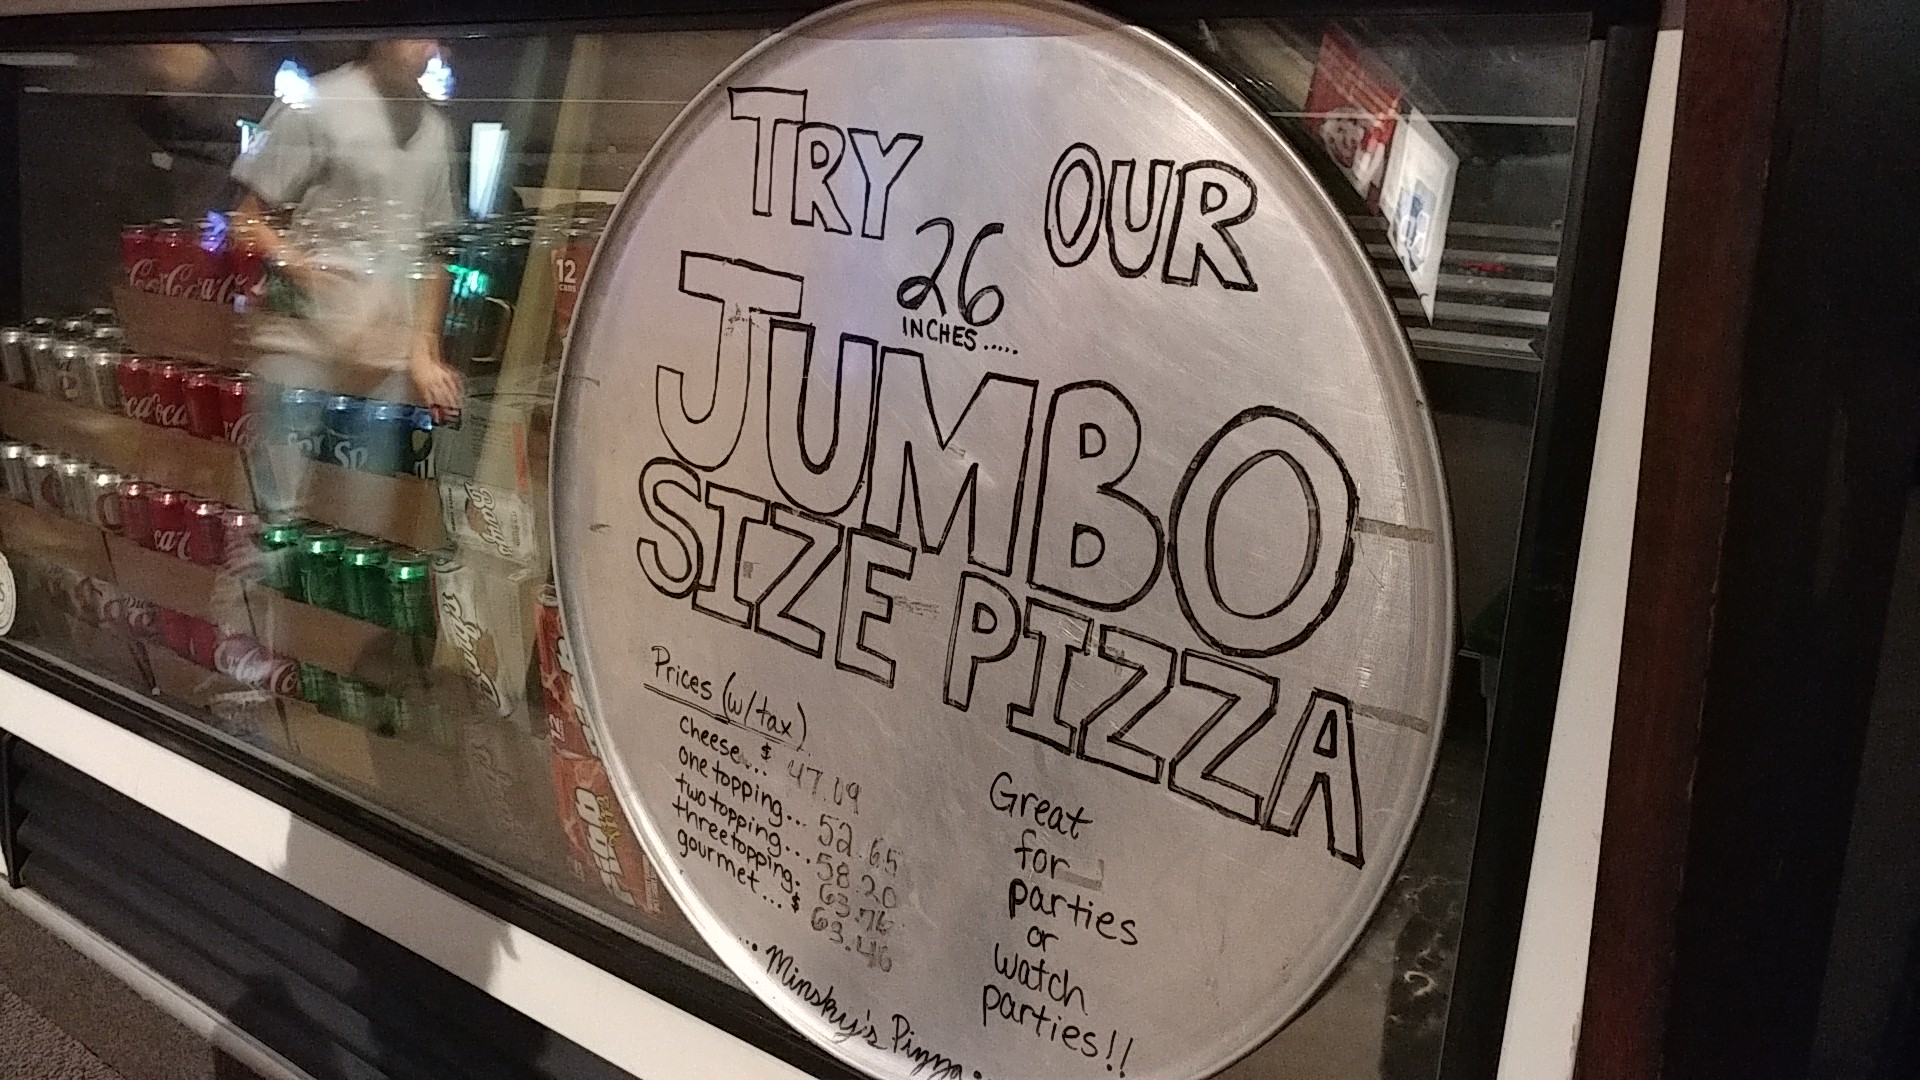 TRY OUR
26
INCHES.....
JUMBO
SIZE PIZZA
Prices (w/tax)
cheese... $ 47.09
one topping... 52.65
two topping... 58.20
three topping: 63.76
gourmet... $ 63.46
Great
for
parties
or
watch
parties!!
... Minsky's Pizza.
12
CANS
Coca-Cola